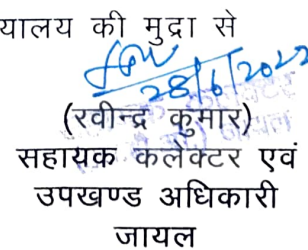 यालय की मुद्रा से
28/6/2022
(रवीन्द्र कुमार)
सहायक कलेक्टर एवं
उपखण्ड अधिकारी
जायल